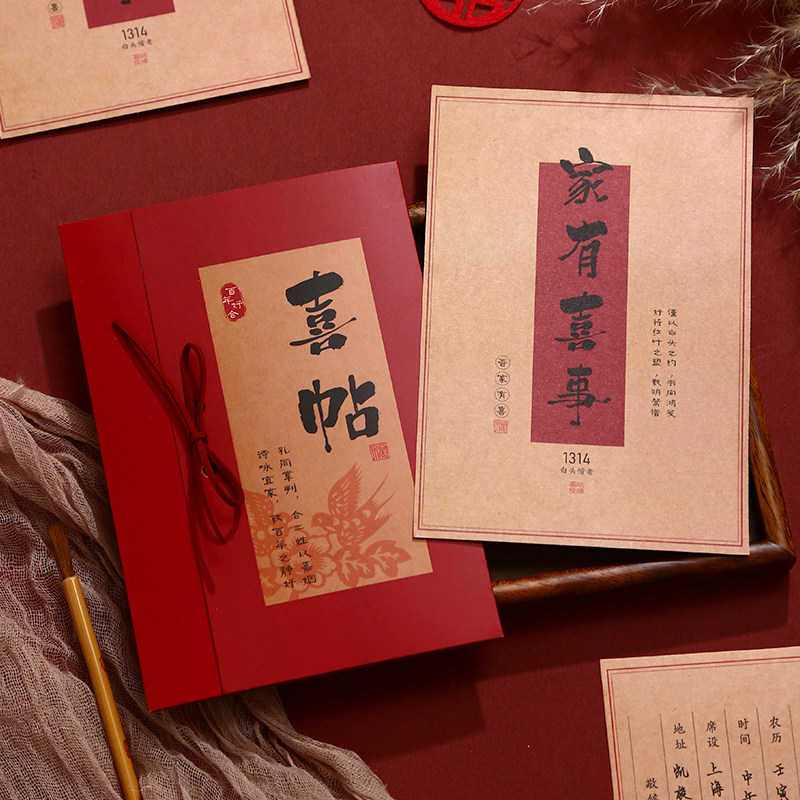 喜
1314
白头偕老
百年好合
喜帖
礼同掌判，合二姓以嘉姻
诗咏宜家，敦百年之静好
家有喜事
谨以白头之约，书向鸿笺
好将红叶之盟，载明鸳谱
吾家有喜
1314
白头偕老
农历 壬寅
时间 中午
席设 上海
地址 凯旋
敬候